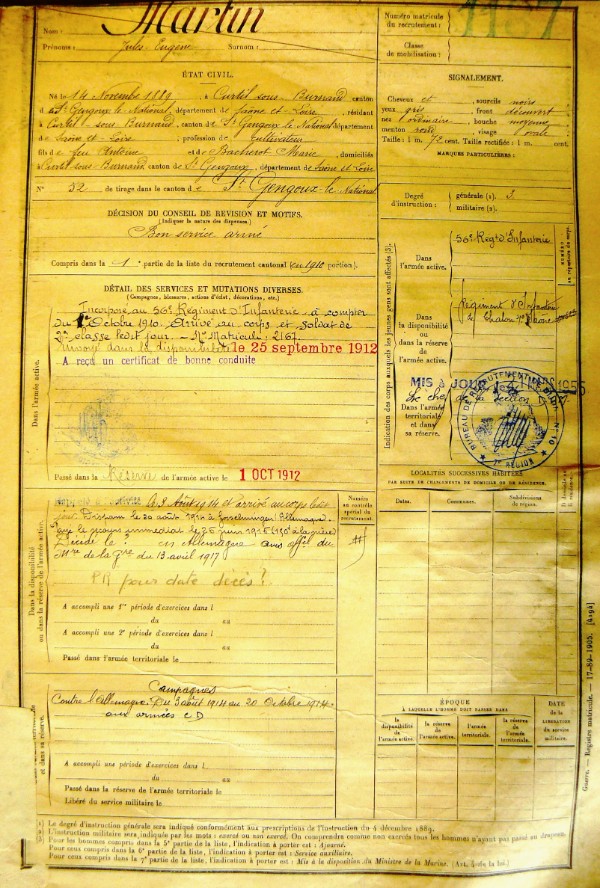 Nom : Martin
Prénoms : Jules Eugène Surnom :
ÉTAT CIVIL.
Né le 14 Novembre 1889, à Curtil sous Burnand, canton
d e St Gengoux le National, département de Saône-et-Loire, résidant
à Curtil-sous-Burnand, canton de St Gengoux le National, département
de Saône et Loire, profession de Cultivateur
fils de feu Antoine et de Bacherot Marie, domiciliés
à Curtil sous Burnand, canton de St Gengoux, département de Saône et Loire
N° 32 de tirage dans le canton d e St Gengoux-le National
DÉCISION DU CONSEIL DE REVISION ET MOTIFS.
(Indiquer la nature des dispenses.)
Bon service armé
Compris dans la 1e partie de la liste du recrutement cantonal (en 1910 portion).
DÉTAIL DES SERVICES ET MUTATIONS DIVERSES.
(Campagnes, blessures, actions d'éclat, décorations, etc.)
Dans l'armée active.
Incorporé au 56e Régiment d'Infanterie à compter
du 1er Octobre 1910. Arrivé au corps et soldat de
2me classe led t jour. No Matricule : 2167.
Envoyé dans la disponibilité le 25 septembre 1912
A reçu un certificat de bonne conduite
Passé dans la Réserve de l'armée active le 1 OCT 1912
Dans la disponibilité
ou dans la réserve de l'armée active.
Numéro
au contrôle
spécial du
recrutement.
Rappelé à l'activité le 3 Août 1914 et arrivé au corps ledit
jour. Disparu le 20 août 1914 à
Décédé avis offel du
Mre de la Gre du 13 avril 1917
PA pour date décès ?
A accompli une 1re période d'exercices dans l
du au
A accompli une 2e période d'exercices dans l
du au
Passé dans l'armée territoriale le
Campagnes
Contre l'Allemagne : Du 3 août 1914 au 20 Octobre 1914
aux armées CD
A accompli une période d'exercices dans l
du au
Passé dans la réserve de l'armée territoriale le
Libéré du service militaire le
Numéro matricule
du recrutement :
Classe
de mobilisation :
SIGNALEMENT.
Cheveux et sourcils noirs
yeux gris, front découvert
nez ordinaire, bouche moyenne
menton rond, visage ovale
Taille : 1 m. 72 cent. Taille rectifiée : 1 m. cent.
MARQUES PARTICULIÈRES :
Degré
d'instruction :
générale (1). 3
militaire (2).
Indication des corps auxquels les jeunes gens sont affectés (3).
NUMÉRO
au répertoire du corps.
Dans
l'armée active.
56e Regt d'Infanterie
Dans
la disponibilité
ou dans
la réserve
de l'armée
active.
Régiment d'Infanterie
de Chalon s/ Saône
MIS À JOUR
Le chef de la section
BUREAU DE RECRUTEMENT
7e RÉGION
Dans l'armée
territoriale
et dans
sa réserve.
LOCALITÉS SUCCESSIVES HABITÉES
PAR SUITE DE CHANGEMENTS DE DOMICILE OU DE RÉSIDENCE.
Dates. Communes. Subdivisions de région.
ÉPOQUE
À LAQUELLE L'HOMME DOIT PASSER DANS
la disponibilité de l'armée active. la réserve de l'armée active. l'armée territoriale. la réserve de l'armée territoriale.
DATE
de la
LIBÉRATION
du service
militaire.
Guerre. — Registre matricule. — 17-89-1905.
(1) Le degré d'instruction générale sera indiqué conformément aux prescriptions de l'Instruction du 4 décembre 1889.
(2) L'instruction militaire sera indiquée par les mots : exercé ou non exercé. On comprendra comme non exercés tous les hommes n'ayant pas passé au drapeau.
Pour les hommes compris dans la 5e partie de la liste, l'indication à porter est : Ajourné.
Pour ceux compris dans la 6e partie de la liste, l'indication à porter est : Service auxiliaire.
Pour ceux compris dans la 7e partie de la liste, l'indication à porter est : Mis à la disposition du Ministre de la Marine. (Art. 4 de la loi.)